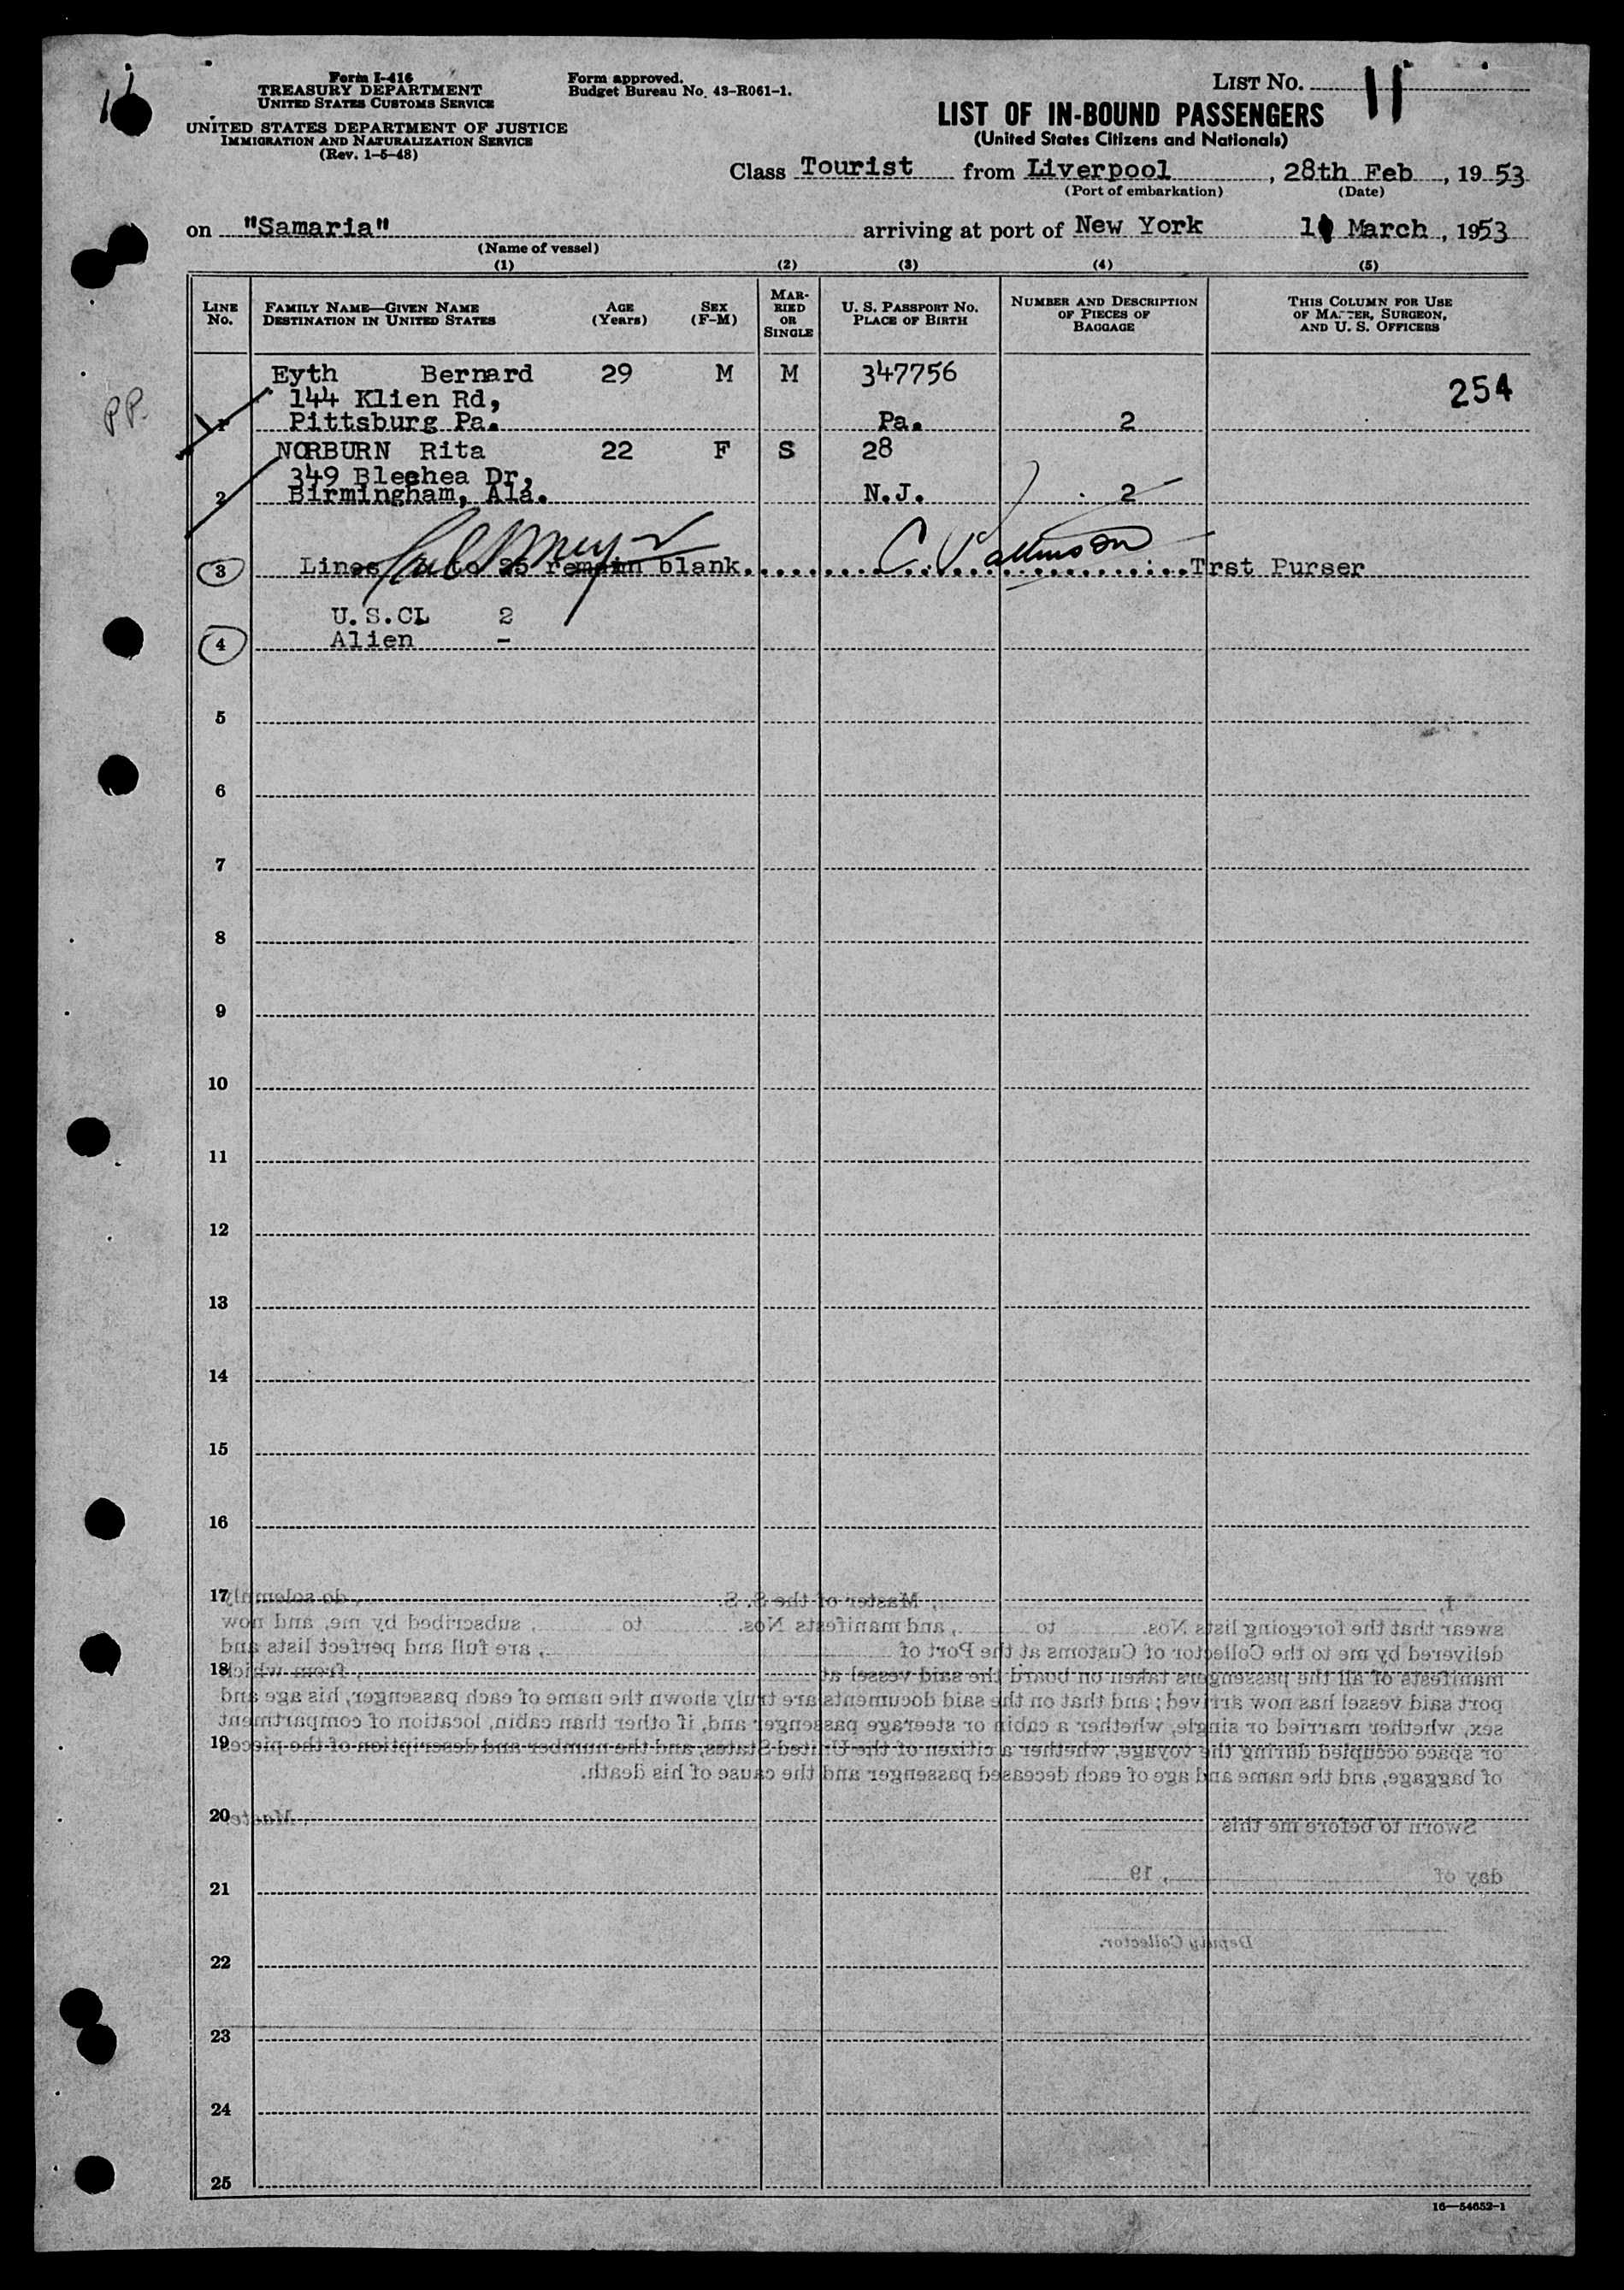 Form I-416
TREASURY DEPARTMENT
UNITED STATES CUSTOMS SERVICE
UNITED STATES DEPARTMENT OF JUSTICE
IMMIGRATION AND NATURALIZATION SERVICE
(Rev. 1-5-48)
Form approved.
Budget Bureau No. 43-R061-1.
LIST NO. 11
LIST OF IN-BOUND PASSENGERS
(United States Citizens and Nationals)
Class Tourist from Liverpool, 28th Feb, 19 53
(Port of embarkation) (Date)
on "Samaria" arriving at port of New York March, 1953
(Name of vessel)
(1) (2) (3) (4) (5)
LINE NO. FAMILY NAME—GIVEN NAME DESTINATION IN UNITED STATES AGE (Years) SEX (F-M) MARRIED OR SINGLE U. S. PASSPORT NO. PLACE OF BIRTH NUMBER AND DESCRIPTION OF PIECES OF BAGGAGE THIS COLUMN FOR USE OF MASTER, SURGEON, AND U. S. OFFICERS
PP.
Eyth Bernard 29 M M 347756 254
144 Klien Rd,
1 Pittsburg Pa. Pa. 2
NORBURN Rita 22 F S 28
349 Blechea Dr,
2 Birmingham, Ala. N.J. 2
3 Lines to 25 remain blank. Trst Purser
U.S.CL 2
4 Alien -
5
6
7
8
9
10
11
12
13
14
15
16
17
18
19
20
21
22
23
24
25
I, , Master of the S. S. , do solemnly
swear that the foregoing lists Nos. to , and manifests Nos. to , subscribed by me, and now
delivered by me to the Collector of Customs at the Port of , are full and perfect lists and
manifests of all the passengers taken on board the said vessel at , from which
port said vessel has now arrived; and that on the said documents are truly shown the name of each passenger, his age and
sex, whether married or single, whether a cabin or steerage passenger and, if other than cabin, location of compartment
or space occupied during the voyage, whether a citizen of the United States, and the number and description of the pieces
of baggage, and the name and age of each deceased passenger and the cause of his death.
Master
Sworn to before me this
day of , 19
Deputy Collector.
16—54652-1